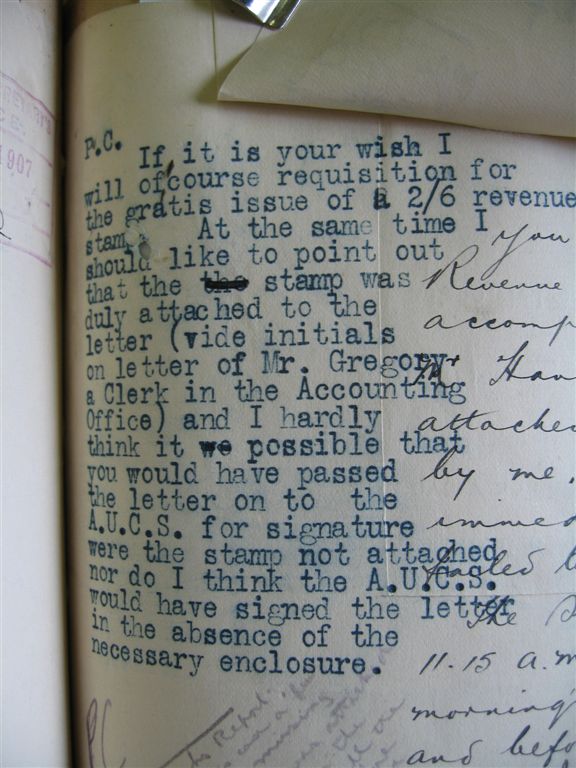 1907
P.C. If it is your wish I
will of course requisition for
the gratis issue of a 2/6 revenue
stamp. At the same time I
should like to point out
that the the stamp was
duly attached to the
letter (vide initials
on letter of Mr. Gregory
a Clerk in the Accounting
Office) and I hardly
think it we possible that
you would have passed
the letter on to the
A.U.C.S. for signature
were the stamp not attached
nor do I think the A.U.C.S.
would have signed the letter
in the absence of the
necessary enclosure.
you
Revenue
accomp
attached
by me.
immed
The
11.15 a.m
morning
and befo